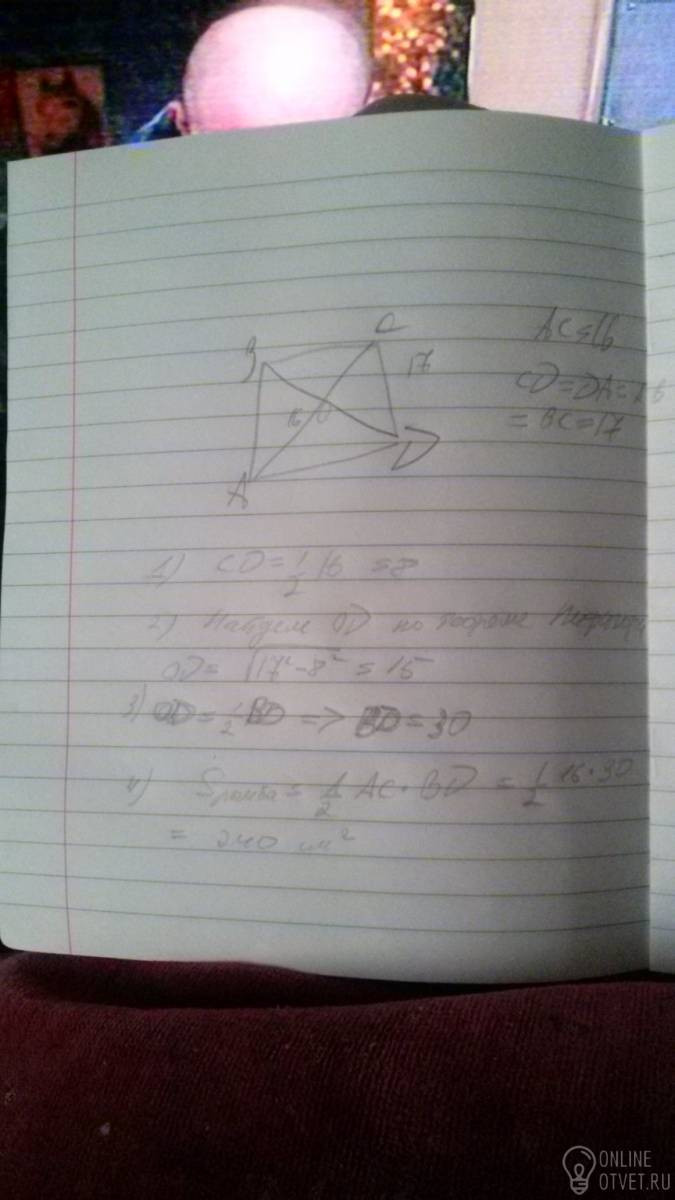 C
B
17
16
O
A
D
AC=16
CD=DA=AB
=BC=17
1) CO=1/2 16 =8
2) Найдем OD по теореме Пифагора
OD=√17²-8² =15
3) OD=1/2 BD => BD=30
4) Sромба= 1/2 AC·BD = 1/2 16·30
= 240 см²
ONLINE
OTVET.RU